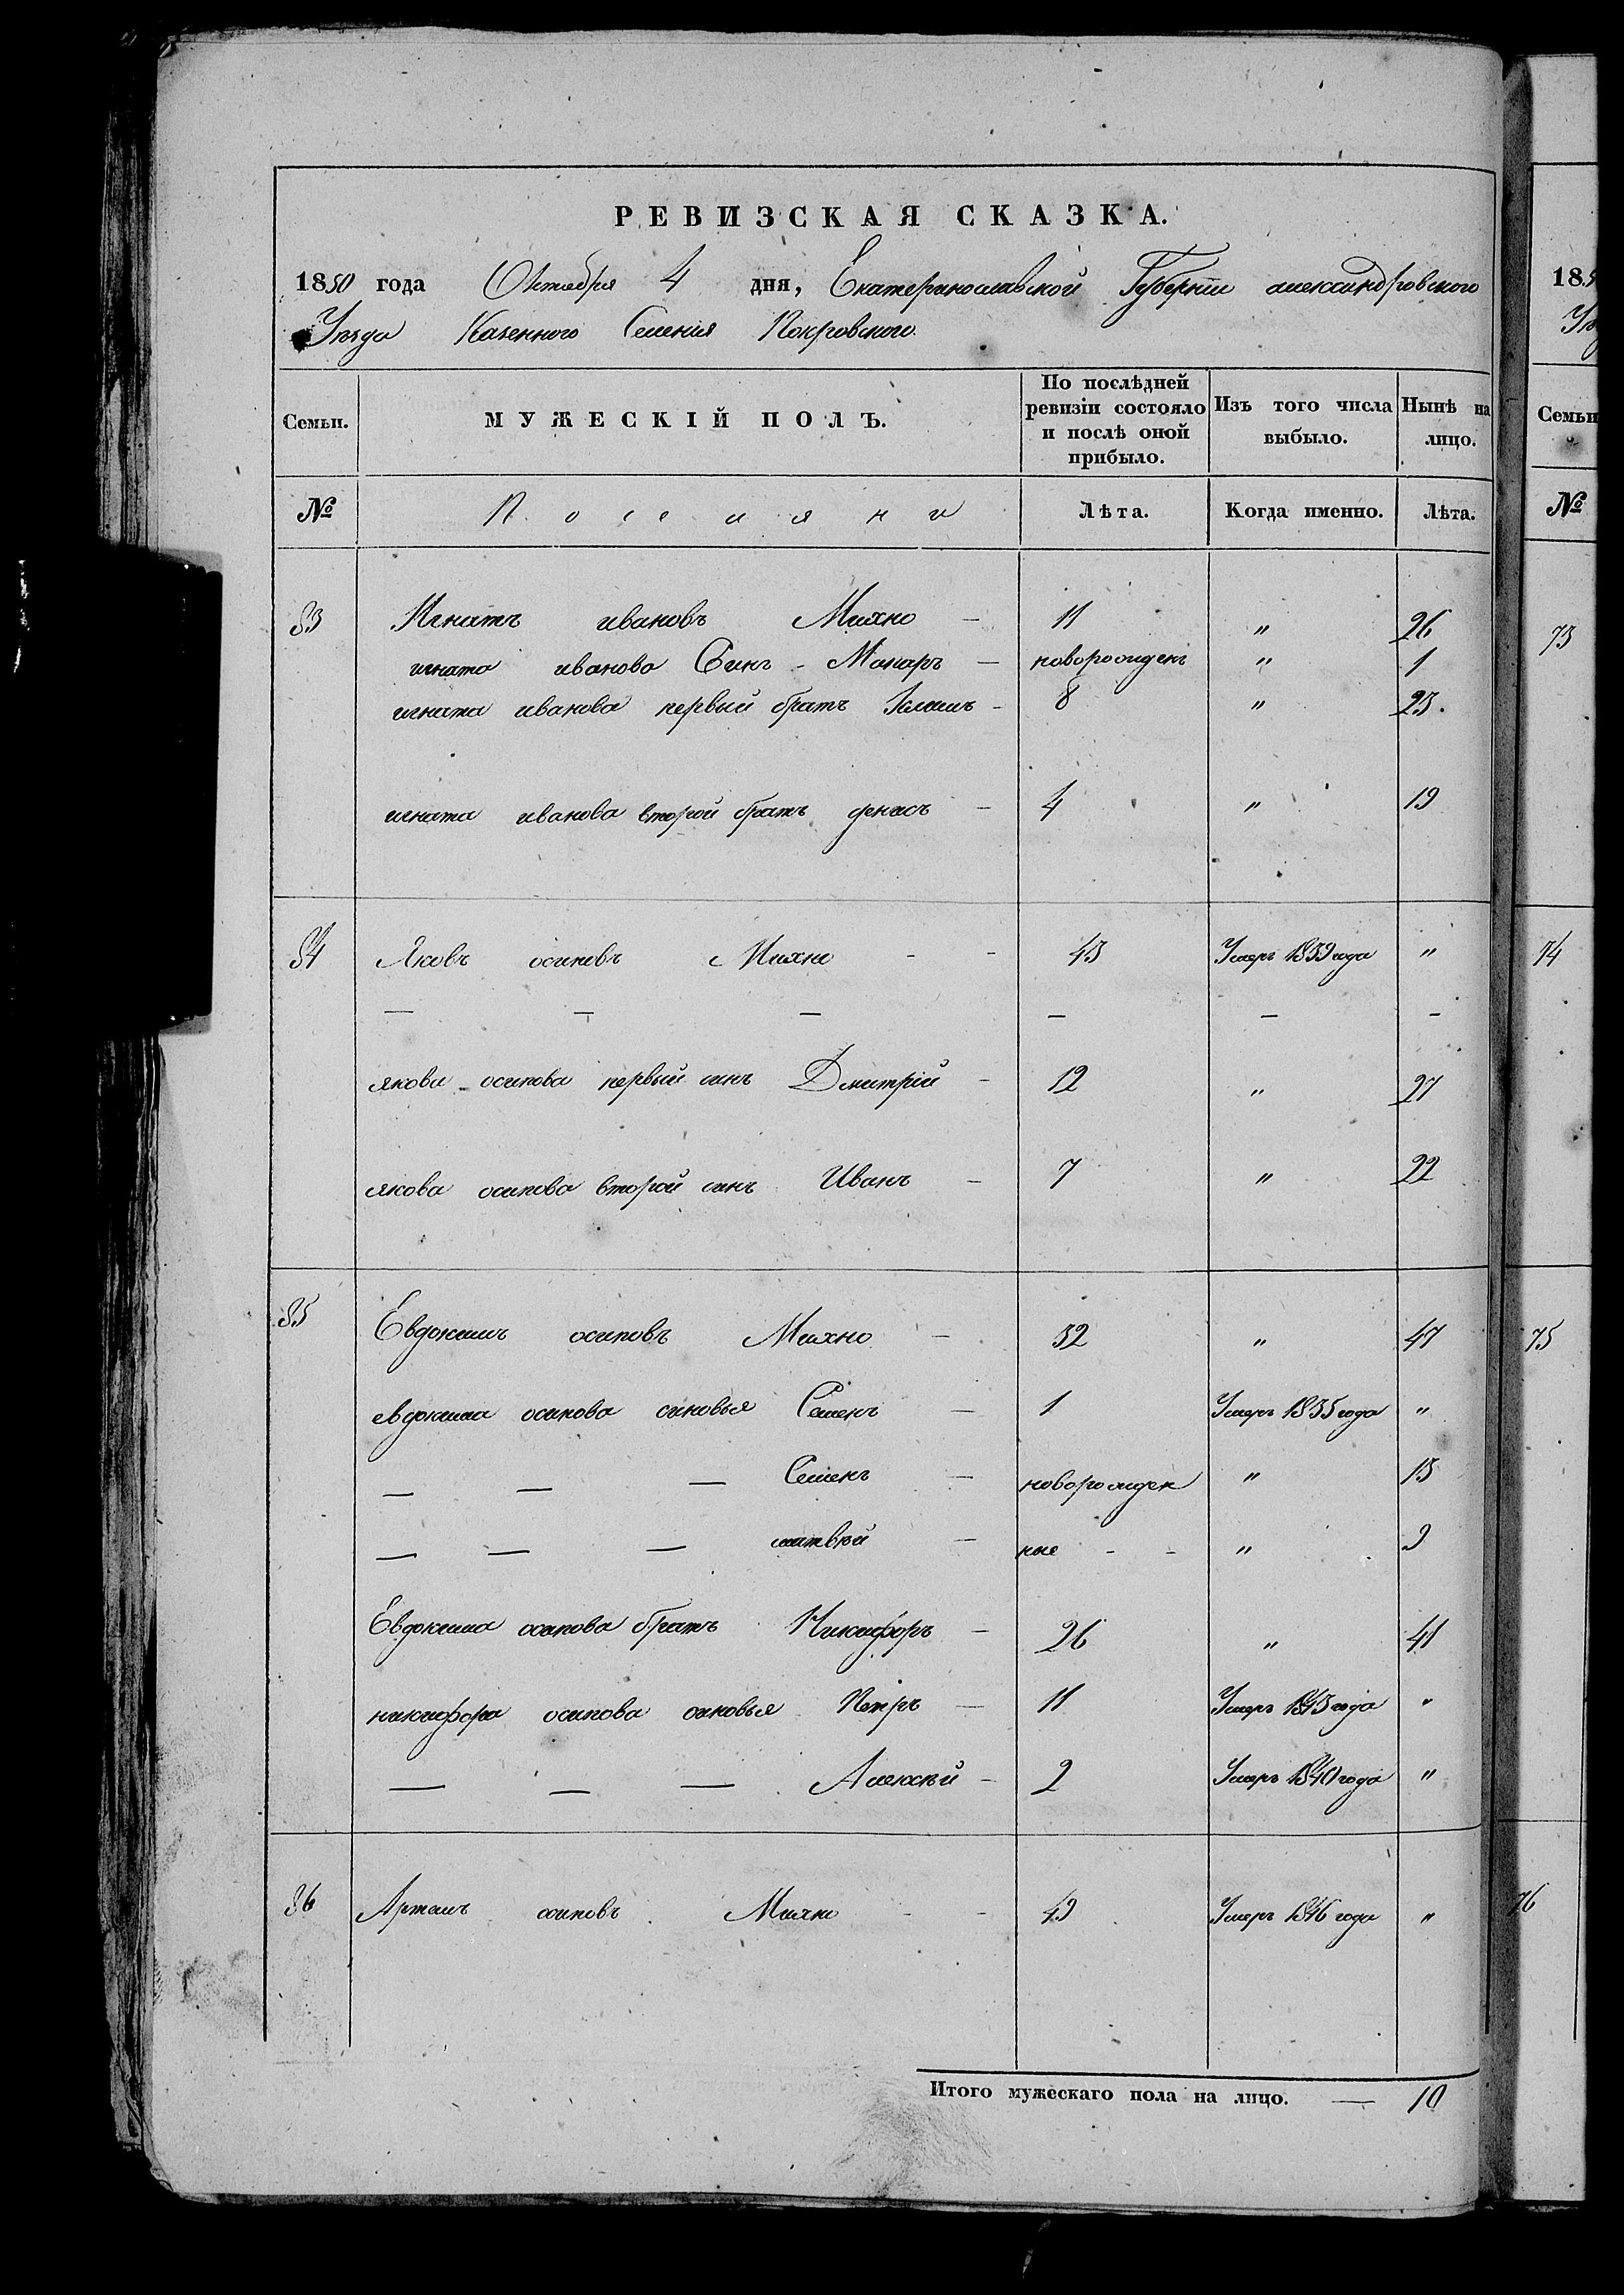 РЕВИЗСКАЯ СКАЗКА.
1850 года Октября 4 дня, Екатеринославской Губернии александровского
Уезда Казенного Селения Покровского.
Семьи. МУЖЕСКІЙ ПОЛЪ. По послѣдней ревизіи состояло и послѣ оной прибыло. Изъ того числа выбыло. Нынѣ на лицо.
№ Поселяни Лѣта. Когда именно. Лѣта.
83 Игнатъ ивановъ Михно - 11 " 26
игната иванова Синъ - Макаръ - новорожденъ " 1
игната иванова первый братъ - 8 " 23.
игната иванова второй братъ денисъ - 4 " 19
84 Яковъ осиповъ Михно - - 43 Умеръ 1839 года "
— — — — — -
якова осипова первый синъ Дмитрій - 12 " 27
якова осипова второй синъ Иванъ - 7 " 22
85 Евдокимъ осиповъ Михно - 32 " 47
евдокима осипова синовья Семенъ - 1 Умеръ 1835 года "
— — — Семенъ - новорожден " 13
— — — матвѣй - ные - - " 9
Евдокима осипова братъ Никифоръ - 26 " 41
никифора осипова синовья Петръ - 11 Умеръ 1843 года "
— — — Алексѣй - 2 Умеръ 1840 года "
86 Артемъ осиповъ Михно - - 49 Умеръ 1846 года "
Итого мужескаго пола на лицо. — 10
185
Семьи
№
73
74
75
76